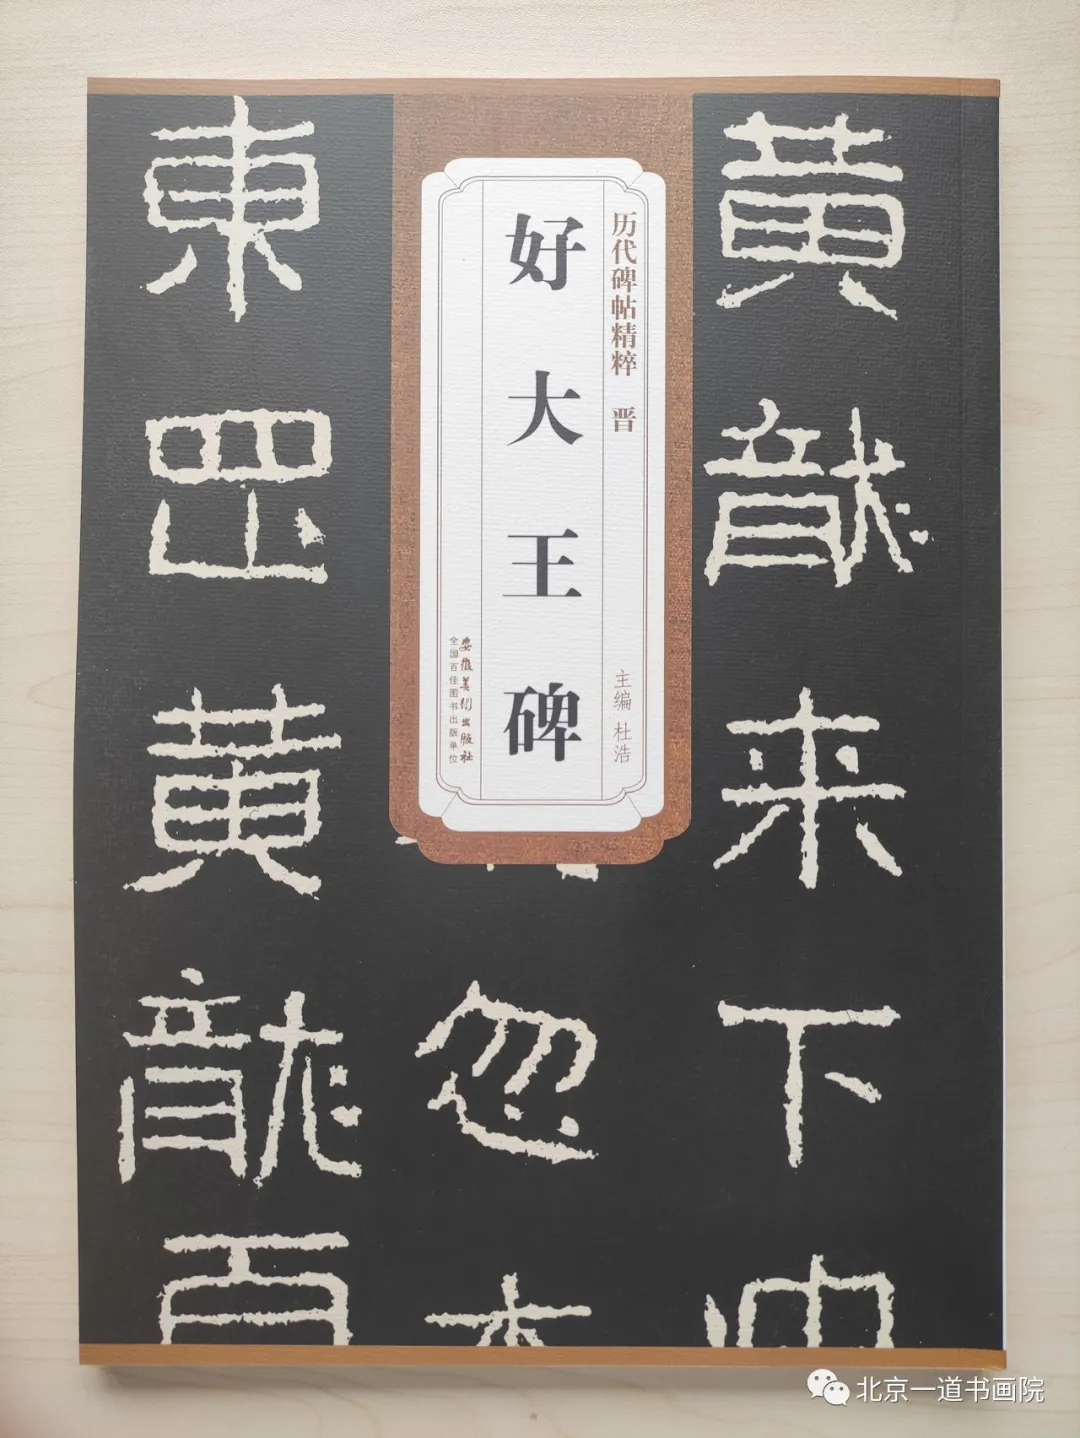 黄龍来下
忽
東罡黄龍
历代碑帖精粹 晋
主编 杜浩
好大王碑
安徽美术出版社
全国百佳图书出版单位
北京一道书画院